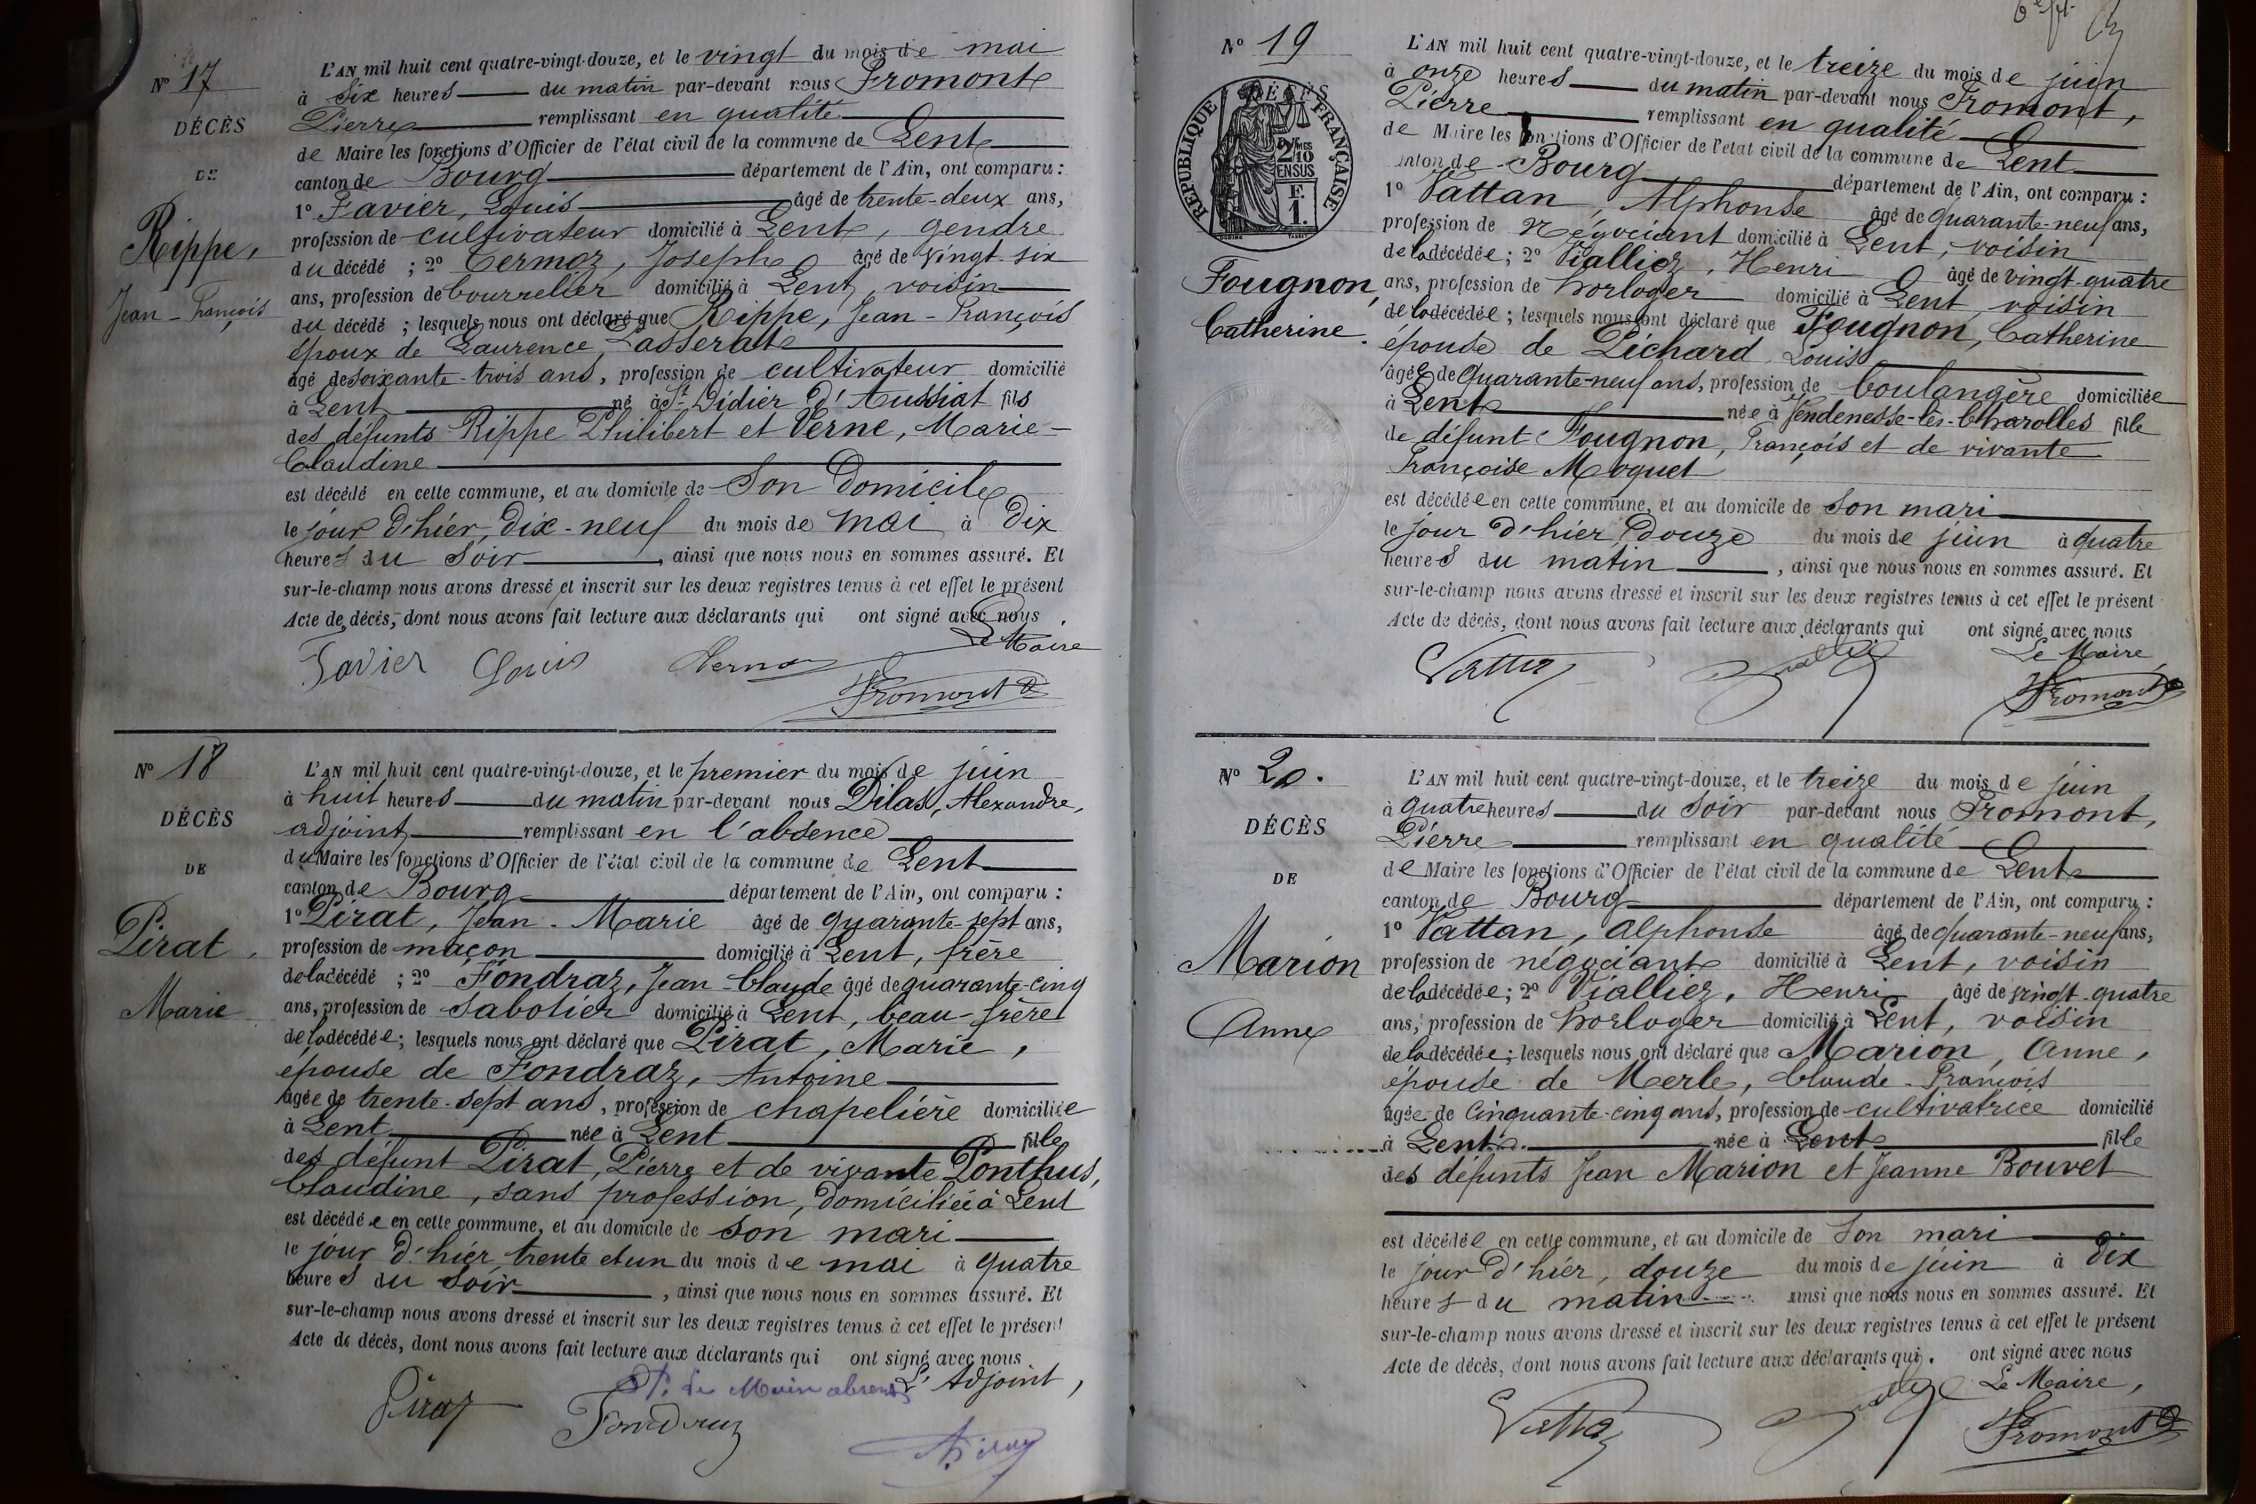 Nº 17
DÉCÈS
DE
Rippe,
Jean-François
L'AN mil huit cent quatre-vingt-douze, et le vingt du mois de mai
à six heures du matin par-devant nous Fromont
Pierre remplissant en qualité
de Maire les fonctions d'Officier de l'état civil de la commune de Lent
canton de Bourg département de l'Ain, ont comparu :
1º Favier, Louis âgé de trente-deux ans,
profession de cultivateur domicilié à Lent, gendre
du décédé ; 2º Termoz, Joseph âgé de vingt-six
ans, profession de bourrelier domicilié à Lent, voisin
du décédé ; lesquels nous ont déclaré que Rippe, Jean-François
époux de Laurence Lasserat
âgé de soixante-trois ans, profession de cultivateur domicilié
à Lent né à St Didier d'Aussiat fils
des défunts Rippe Philibert et Verne, Marie-
Claudine
est décédé en cette commune, et au domicile de Son Domicile
le jour d'hier, dix-neuf du mois de mai à dix
heures du soir, ainsi que nous nous en sommes assuré. Et
sur-le-champ nous avons dressé et inscrit sur les deux registres tenus à cet effet le présent
Acte de décès, dont nous avons fait lecture aux déclarants qui ont signé avec nous
Le Maire
Favier Louis
Fromont
Nº 18
DÉCÈS
DE
Pirat,
Marie
L'AN mil huit cent quatre-vingt-douze, et le premier du mois de juin
à huit heures du matin par-devant nous Dilas, Alexandre,
adjoint remplissant en l'absence
du Maire les fonctions d'Officier de l'état civil de la commune de Lent
canton de Bourg département de l'Ain, ont comparu :
1º Pirat, Jean-Marie âgé de quarante-sept ans,
profession de maçon domicilié à Lent, frère
de la décédé ; 2º Fondraz, Jean-Claude âgé de quarante-cinq
ans, profession de sabotier domicilié à Lent, beau-frère
de la décédée ; lesquels nous ont déclaré que Pirat, Marie,
épouse de Fondraz, Antoine
âgée de trente-sept ans, profession de chapelière domiciliée
à Lent née à Lent fille
des défunt Pirat, Pierre et de vivante Ponthus,
Claudine, sans profession, domiciliée à Lent
est décédée en cette commune, et au domicile de son mari
le jour d'hier trente et un du mois de mai à quatre
heures du soir, ainsi que nous nous en sommes assuré. Et
sur-le-champ nous avons dressé et inscrit sur les deux registres tenus à cet effet le présent
Acte de décès, dont nous avons fait lecture aux déclarants qui ont signé avec nous
P. le Maire absent L'Adjoint,
Piraz Fondraz
Nº 19
DÉCÈS
RÉPUBLIQUE FRANÇAISE
2/10
EN SUS
F
1.
Fougnon,
Catherine.
L'AN mil huit cent quatre-vingt-douze, et le treize du mois de juin
à onze heures du matin par-devant nous Fromont,
Pierre remplissant en qualité
de Maire les fonctions d'Officier de l'état civil de la commune de Lent
canton de Bourg département de l'Ain, ont comparu :
1º Vattan, Alphonse âgé de quarante-neuf ans,
profession de Négociant domicilié à Lent, voisin
de la décédée ; 2º Vialliez, Henri âgé de vingt-quatre
ans, profession de horloger domicilié à Lent, voisin
de la décédée ; lesquels nous ont déclaré que Fougnon, Catherine
épouse de Péchard Louis
âgée de quarante-neuf ans, profession de boulangère domiciliée
à Lent née à Vendenesse-lès-Charolles fille
de défunt Fougnon, François et de vivante
Françoise Moquet
est décédée en cette commune, et au domicile de son mari
le jour d'hier, douze du mois de juin à quatre
heures du matin, ainsi que nous nous en sommes assuré. Et
sur-le-champ nous avons dressé et inscrit sur les deux registres tenus à cet effet le présent
Acte de décès, dont nous avons fait lecture aux déclarants qui ont signé avec nous
Le Maire
Fromont
Nº 20.
DÉCÈS
DE
Marion
Anne
L'AN mil huit cent quatre-vingt-douze, et le treize du mois de juin
à quatre heures du soir par-devant nous Fromont,
Pierre remplissant en qualité
de Maire les fonctions d'Officier de l'état civil de la commune de Lent
canton de Bourg département de l'Ain, ont comparu :
1º Vattan, Alphonse âgé de quarante-neuf ans,
profession de négociant domicilié à Lent, voisin
de la décédée ; 2º Vialliez, Henri âgé de vingt-quatre
ans, profession de horloger domicilié à Lent, voisin
de la décédée ; lesquels nous ont déclaré que Marion, Anne,
épouse de Merle, Claude-François
âgée de cinquante-cinq ans, profession de cultivatrice domicilié
à Lent née à Lent fille
des défunts Jean Marion et Jeanne Bouvet
est décédée en cette commune, et au domicile de son mari
le jour d'hier, douze du mois de juin à dix
heures du matin ainsi que nous nous en sommes assuré. Et
sur-le-champ nous avons dressé et inscrit sur les deux registres tenus à cet effet le présent
Acte de décès, dont nous avons fait lecture aux déclarants qui. ont signé avec nous
Le Maire,
Fromont